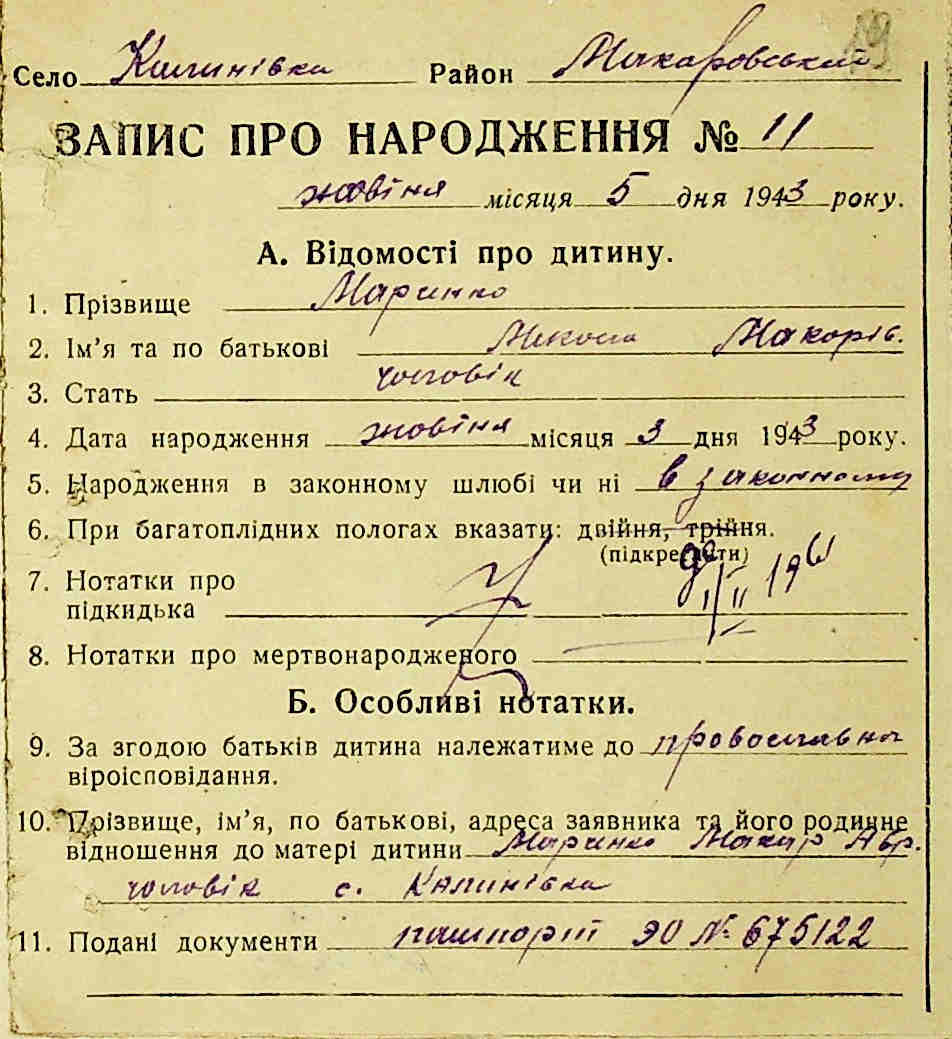 19
Село Калинівка Район Макаровський
ЗАПИС ПРО НАРОДЖЕННЯ № 11
жовтня місяця 5 дня 1943 року.
А. Відомості про дитину.
1. Прізвище Маринко
2. Ім’я та по батькові Микола Макарів.
3. Стать чоловік
4. Дата народження жовтня місяця 3 дня 1943 року.
5. Народження в законному шлюбі чи ні в законному
6. При багатоплідних пологах вказати: двійня, трійня.
(підкреслити)
7. Нотатки про
підкидька
8. Нотатки про мертвонародженого
Б. Особливі нотатки.
9. За згодою батьків дитина належатиме до православна
віроісповідання.
10. Прізвище, ім’я, по батькові, адреса заявника та його родинне
відношення до матері дитини Маринко Макар Авр.
чоловік с. Калинівка
11. Подані документи пашпорт ЭО № 675122